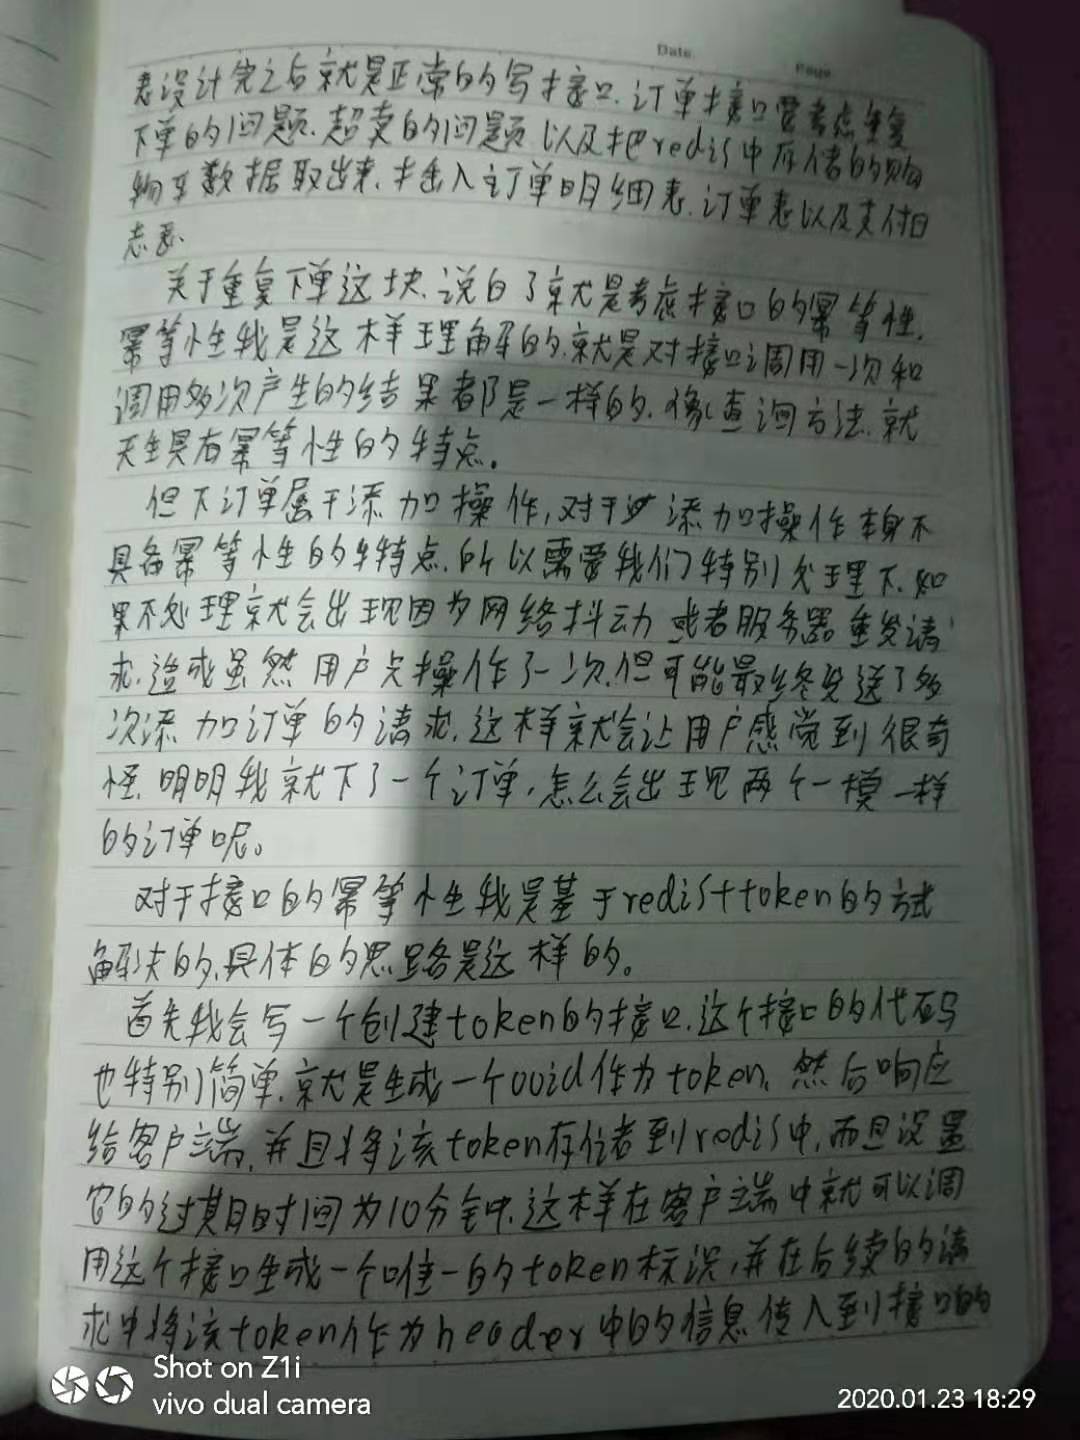 Date
Page
表设计完之后就是正常的写接口.订单接口需考虑重复
下单的问题.超卖的问题 以及把redis中存储的购
物车数据取出来.插入主订单明细表.订单表以及支付日
志表.
关于重复下单这块.说白了就是考虑接口的幂等性.
幂等性我是这样理解的.就是对接口调用一次和
调用多次产生的结果都是一样的.像查询方法.就
天生具有幂等性的特点。
但下订单属于添加操作,对于添加操作本身不
具备幂等性的特点.所以需要我们特别处理下.如
果不处理就会出现因为网络抖动 或者服务器重发请
求.造成虽然用户只操作了一次.但可能最终发送了多
次添加订单的请求.这样就会让用户感觉到很奇
怪.明明我就下了一个订单,怎么会出现两个一模一样
的订单呢。
对于接口的幂等性我是基于redis+token的方式
解决的.具体的思路是这样的。
首先我会写一个创建token的接口.这个接口的代码
也特别简单.就是生成一个uuid作为token、然后响应
给客户端,并且将该token存储到redis中,而且设置
它的过期时间为10分钟.这样在客户端中就可以调
用这个接口生成一个唯一的token标识,并在后续的请
求中将该token作为header中的信息传入到接口的
Shot on Z1i
vivo dual camera
2020.01.23 18:29